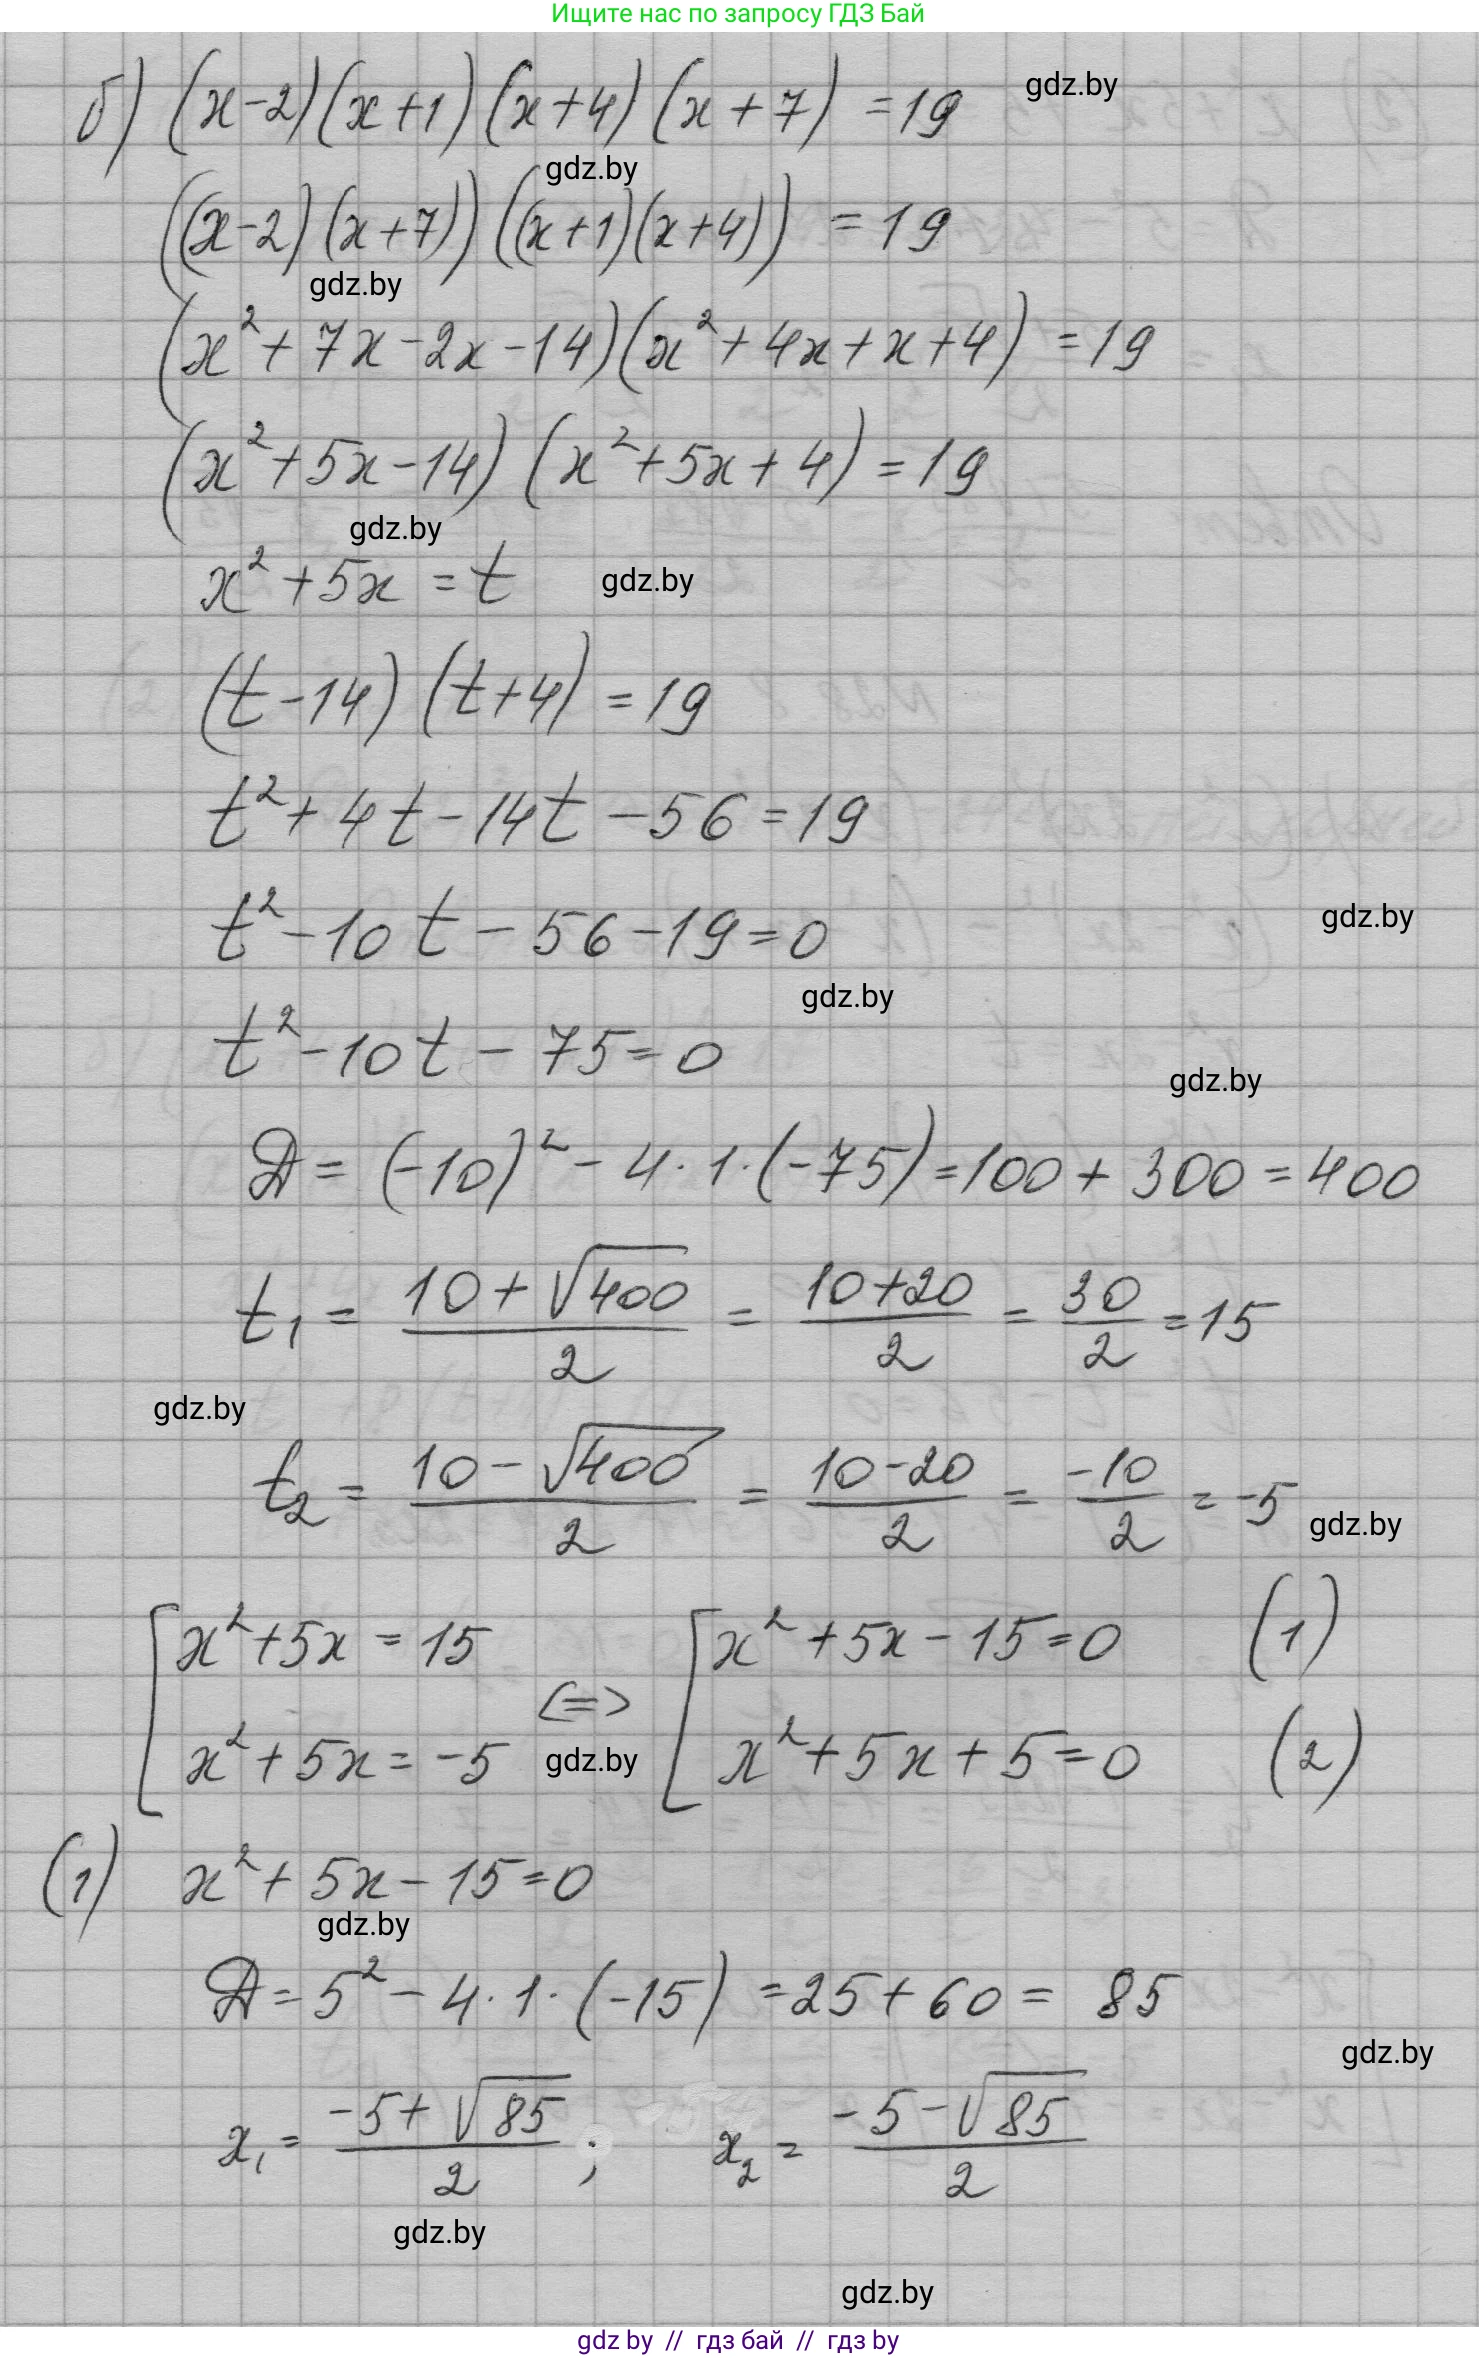 Ищите нас по запросу ГДЗ Бай
б) (x-2)(x+1)(x+4)(x+7) =19
gdz.by
gdz.by
((x-2)(x+7))((x+1)(x+4)) =19
gdz.by
(x²+7x-2x-14)(x²+4x+x+4) =19
(x²+5x-14)(x²+5x+4)=19
gdz.by
x²+5x =t
gdz.by
(t-14)(t+4)=19
t²+4t-14t-56=19
t²-10t-56-19=0
gdz.by
gdz.by
t²-10t-75=0
gdz.by
Д= (-10)²-4·1·(-75)=100+300=400
t₁ = (10+√400)/2 = (10+20)/2 = 30/2 =15
gdz.by
t₂ = (10-√400)/2 = (10-20)/2 = -10/2 = -5
gdz.by
[x²+5x =15 <=> [x²+5x-15=0 (1)
x²+5x= -5 gdz.by x²+5x+5=0 (2)
(1) x²+5x-15=0
gdz.by
Д=5²-4·1·(-15) =25+60= 85
gdz.by
x₁= (-5+√85)/2 ; x₂= (-5-√85)/2
gdz.by
gdz.by
gdz by // гдз бай // гдз by